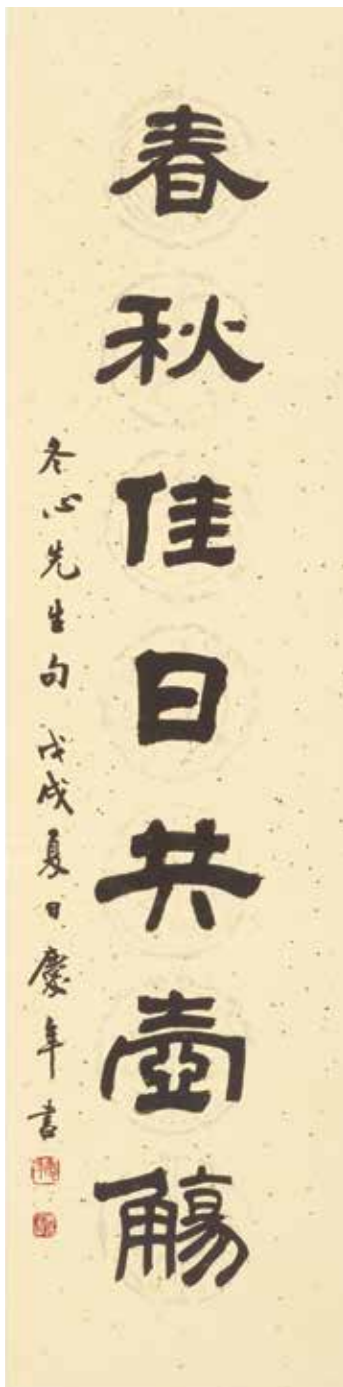 春秋佳日共壺觴
冬心先生句 戊戌夏日慶年書